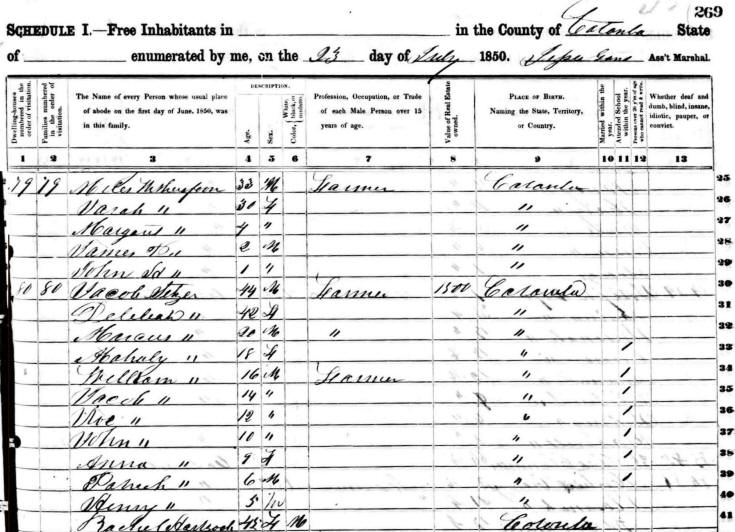 269
SCHEDULE I.—Free Inhabitants in in the County of Catawba State
of enumerated by me, on the 23 day of July 1850. Ass't Marshal.
Dwelling-houses numbered in the order of visitation.
Families numbered in the order of visitation.
The Name of every Person whose usual place of abode on the first day of June, 1850, was in this family.
DESCRIPTION.
Age.
Sex.
Color, White, black, or mulatto.
Profession, Occupation, or Trade of each Male Person over 15 years of age.
Value of Real Estate owned.
PLACE OF BIRTH. Naming the State, Territory, or Country.
Married within the year.
Attended School within the year.
Persons over 20 y'rs of age who cannot read & write.
Whether deaf and dumb, blind, insane, idiotic, pauper, or convict.
1 2 3 4 5 6 7 8 9 10 11 12 13
79 79 Miles 33 M Farmer Catawba 25
Sarah " 30 F " 26
Margaret " 4 " " 27
James " 2 M " 28
John " 1 " " 29
80 80 Jacob Setzer 44 M Farmer 1500 Catawba 30
Delilah " 42 F " 31
Marcus " 20 M " " 32
Mahaly " 18 F " 1 33
William " 16 M Farmer " 1 34
Jacob " 14 " " 1 35
Noe " 12 " " 1 36
John " 10 " " 1 37
Anna " 9 F " 1 38
Patrick " 6 M " 1 39
Henry " 5 " 40
Rachel 45 F Catawba 41